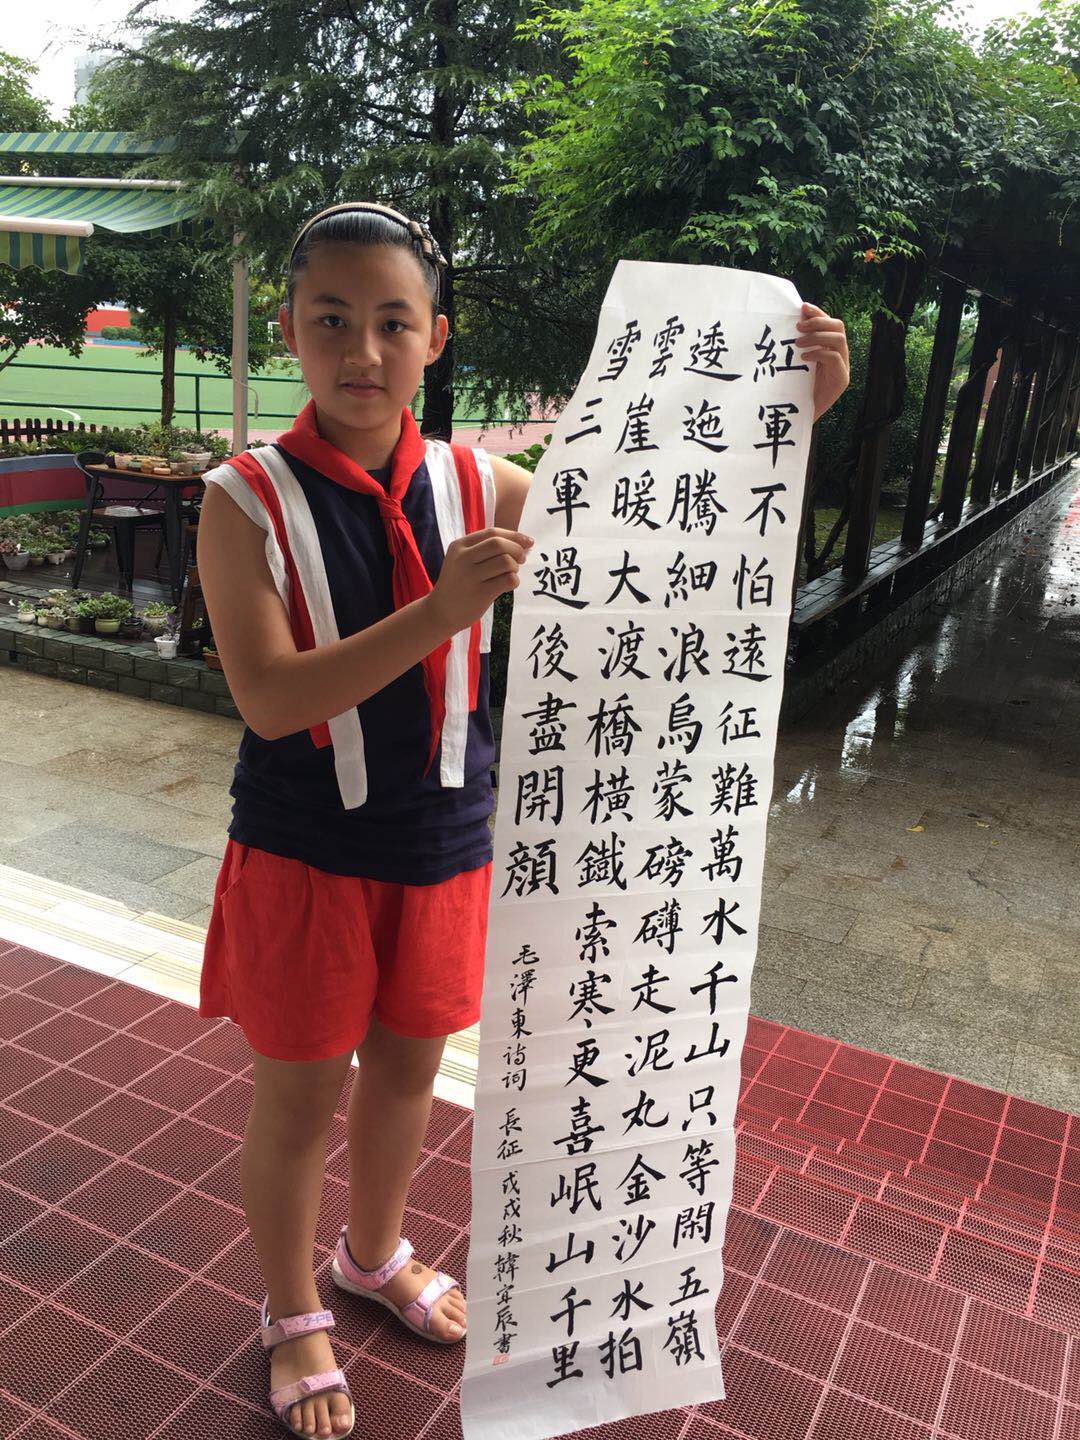 紅軍不怕遠征難萬水千山只等閑五嶺
逶迤騰細浪烏蒙磅礴走泥丸金沙水拍
雲崖暖大渡橋橫鐵索寒更喜岷山千里
雪三軍過後盡開顏
毛澤東诗词 長征 戊戌秋 韓宜辰書